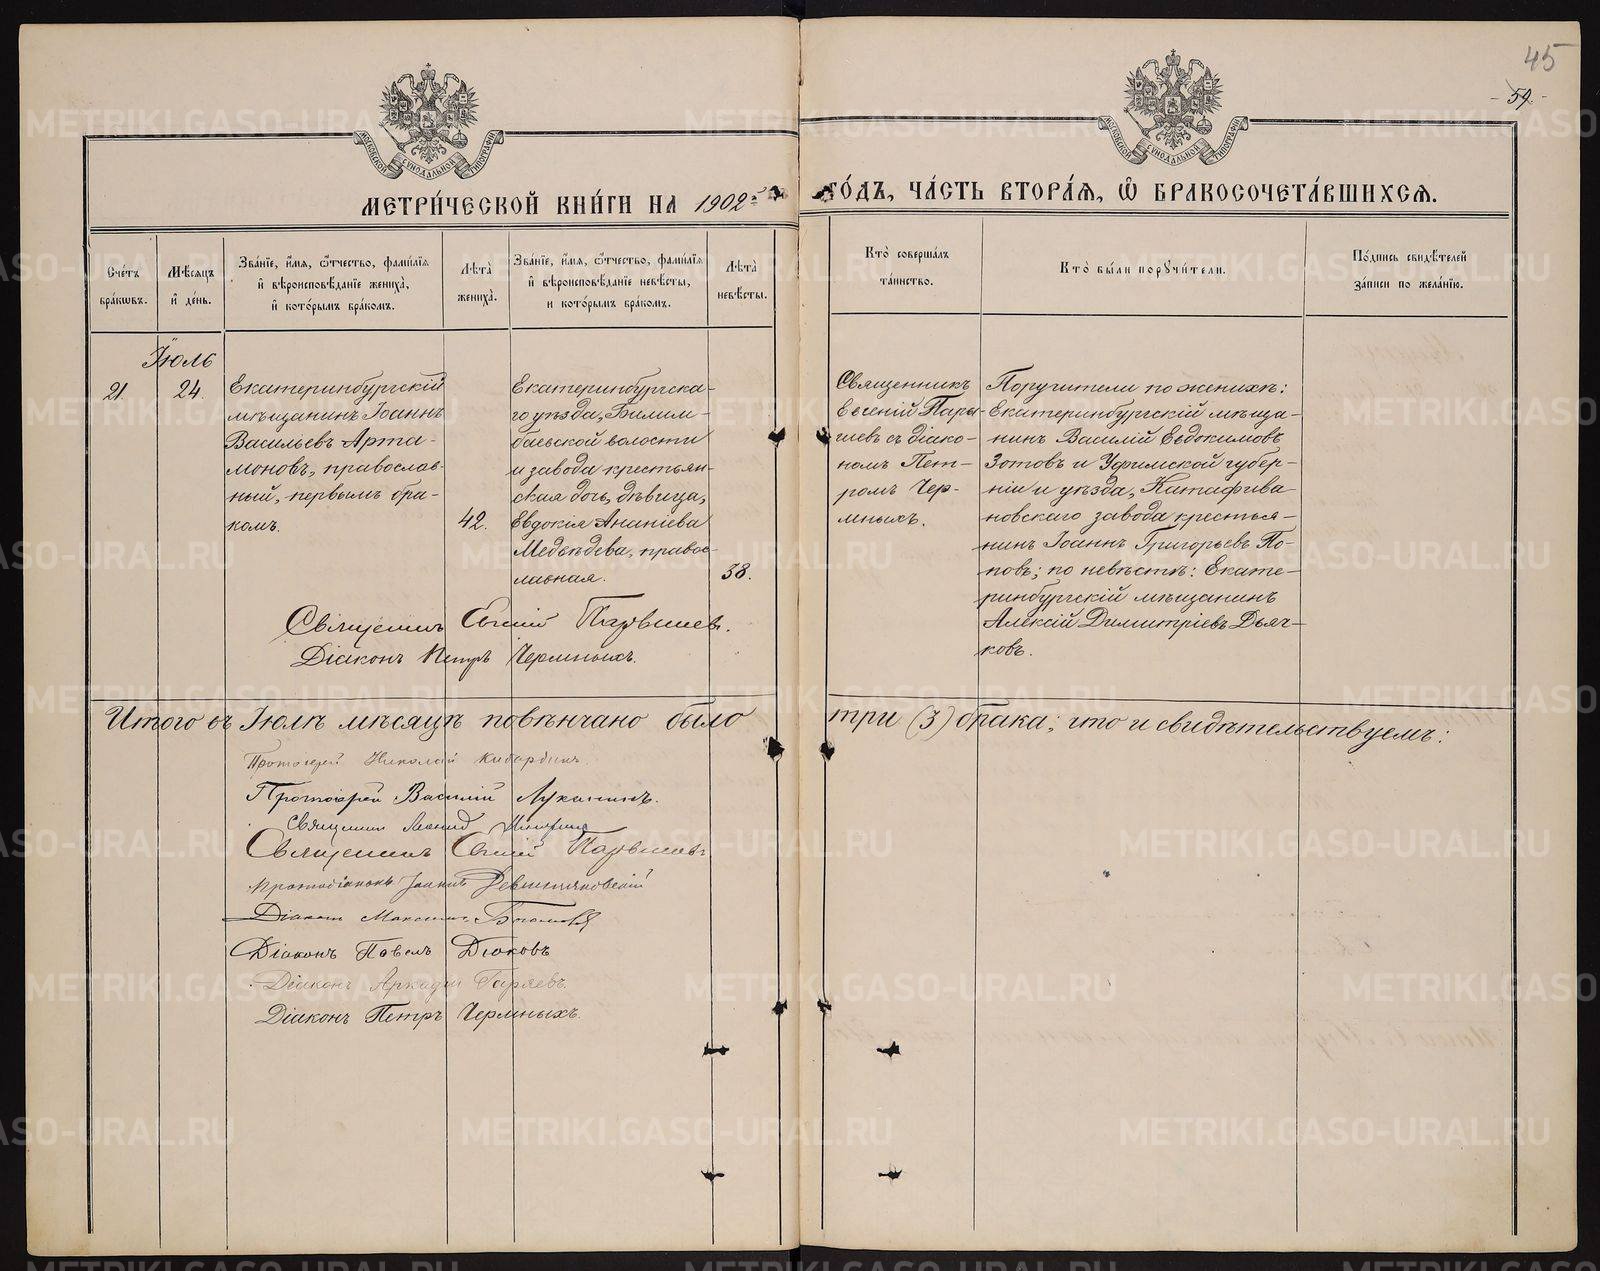 45
- 59. -
МОСКОВСКОЙ СѴНОДАЛЬНОЙ ТИПОГРАФІИ
МОСКОВСКОЙ СѴНОДАЛЬНОЙ ТИПОГРАФІИ
МЕТРИ́ЧЕСКОЙ КНИ́ГИ НА 1902 ГО́ДЪ, ЧА́СТЬ ВТОРА́Я, Ѡ҆ БРАКОСОЧЕТА́ВШИХСЯ.
Сче́тъ бра́кѡвъ.
Мѣ́сяцъ и҆ де́нь.
Зва́нїе, и҆́мя, ѻ҆́тчество, фами́лїя и҆ вѣроисповѣ́данїе жениха̀, и҆ кото́рымъ бра́комъ.
Лѣ́та̀ жениха̀.
Зва́нїе, и҆́мя, ѻ҆́тчество, фами́лїя и҆ вѣроисповѣ́данїе невѣ́сты, и кото́рымъ бра́комъ.
Лѣ́та̀ невѣ́сты.
Кто̀ соверша́лъ та́инство.
Кто̀ бы́ли порꙋчи́тели.
По́дпись свидѣ́телей за́писи по жела́нїю.
Іюль
21.
24.
Екатеринбургскій
мѣщанинъ Іоаннъ
Васильевъ Арта-
моновъ, православ-
ный, первымъ бра-
комъ.
42.
Екатеринбургска-
го уѣзда, Билим-
баевской волости
и завода крестьян-
ская дочь, дѣвица,
Евдокія Ананіева
Медвѣдева, правос-
лавная.
38.
Священникъ
Евсеній Пары-
шевъ съ діако-
номъ Пет-
ромъ Чер-
мныхъ.
Поручители по женихѣ:
Екатеринбургскій мѣща-
нинъ Василій Евдокимовъ
Зотовъ и Уфимской губер-
ніи и уѣзда, Катафива
новскаго завода крестья-
нинъ Іоаннъ Григорьевъ По-
повъ; по невѣстѣ: Екате-
ринбургскій мѣщанинъ
Алексій Димитріевъ Дьяч-
ковъ.
Священникъ Евсеній Парышевъ.
Діаконъ Петръ Чермныхъ.
Итого въ Іюлѣ мѣсяцѣ повѣнчано было три (3) брака; что и свидѣтельствуемъ:
Протоіерей Николай Кибардинъ.
Протоіерей Василій Луканинъ.
Священникъ Леонид
Священникъ Евсеній Парышевъ
Протодіаконъ Іоаннъ
Діаконъ Максимъ
Діаконъ Павелъ Дюковъ
Діаконъ Аркадій Горяевъ.
Діаконъ Петръ Чермныхъ.
METRIKI.GASO-URAL.RU